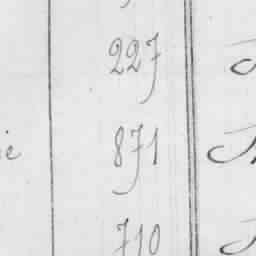 227
871
710